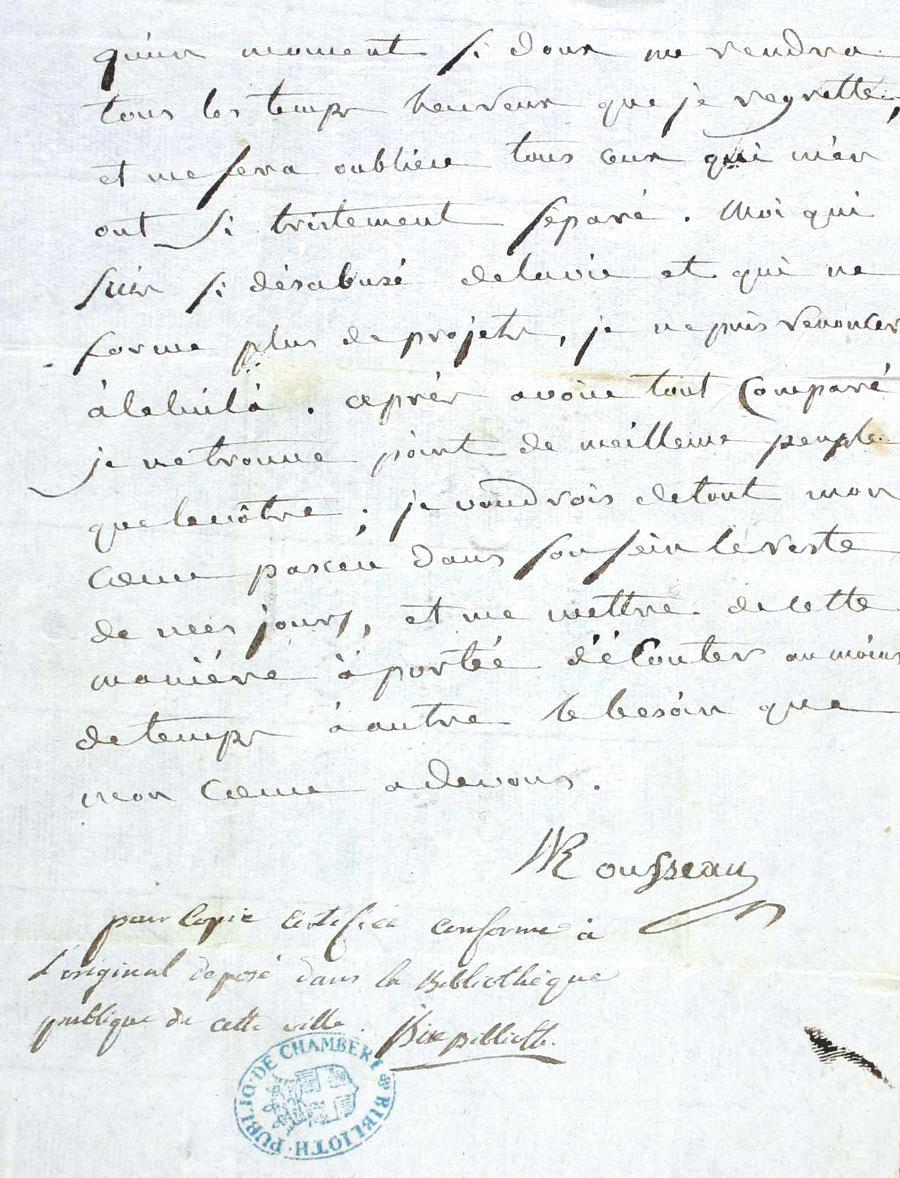 qu'un moment si doux me rendra
tous les temps heureux que je regrette,
et me fera oublier tous ceux qui m'en
ont si tristement separé. Moi qui
suis si désabusé de la vie et qui ne
forme plus de projets, je ne puis renoncer
à celui là. après avoir tout Comparé
je ne trouve point de meilleur peuple
que le nôtre; je voudrois de tout mon
cœur passer dans son sein le reste
de mes jours, et me mettre de cette
maniére à portée d'éCouter au moins
de temps à autre le besoin que
mon Cœur a de vous.
JJRousseau
pour Copie certifiée conforme à
l'original déposé dans la Bibliothèque
publique de cette ville. Bibliothe.
BIBLIOTH. PUBLIQ. DE CHAMBERI